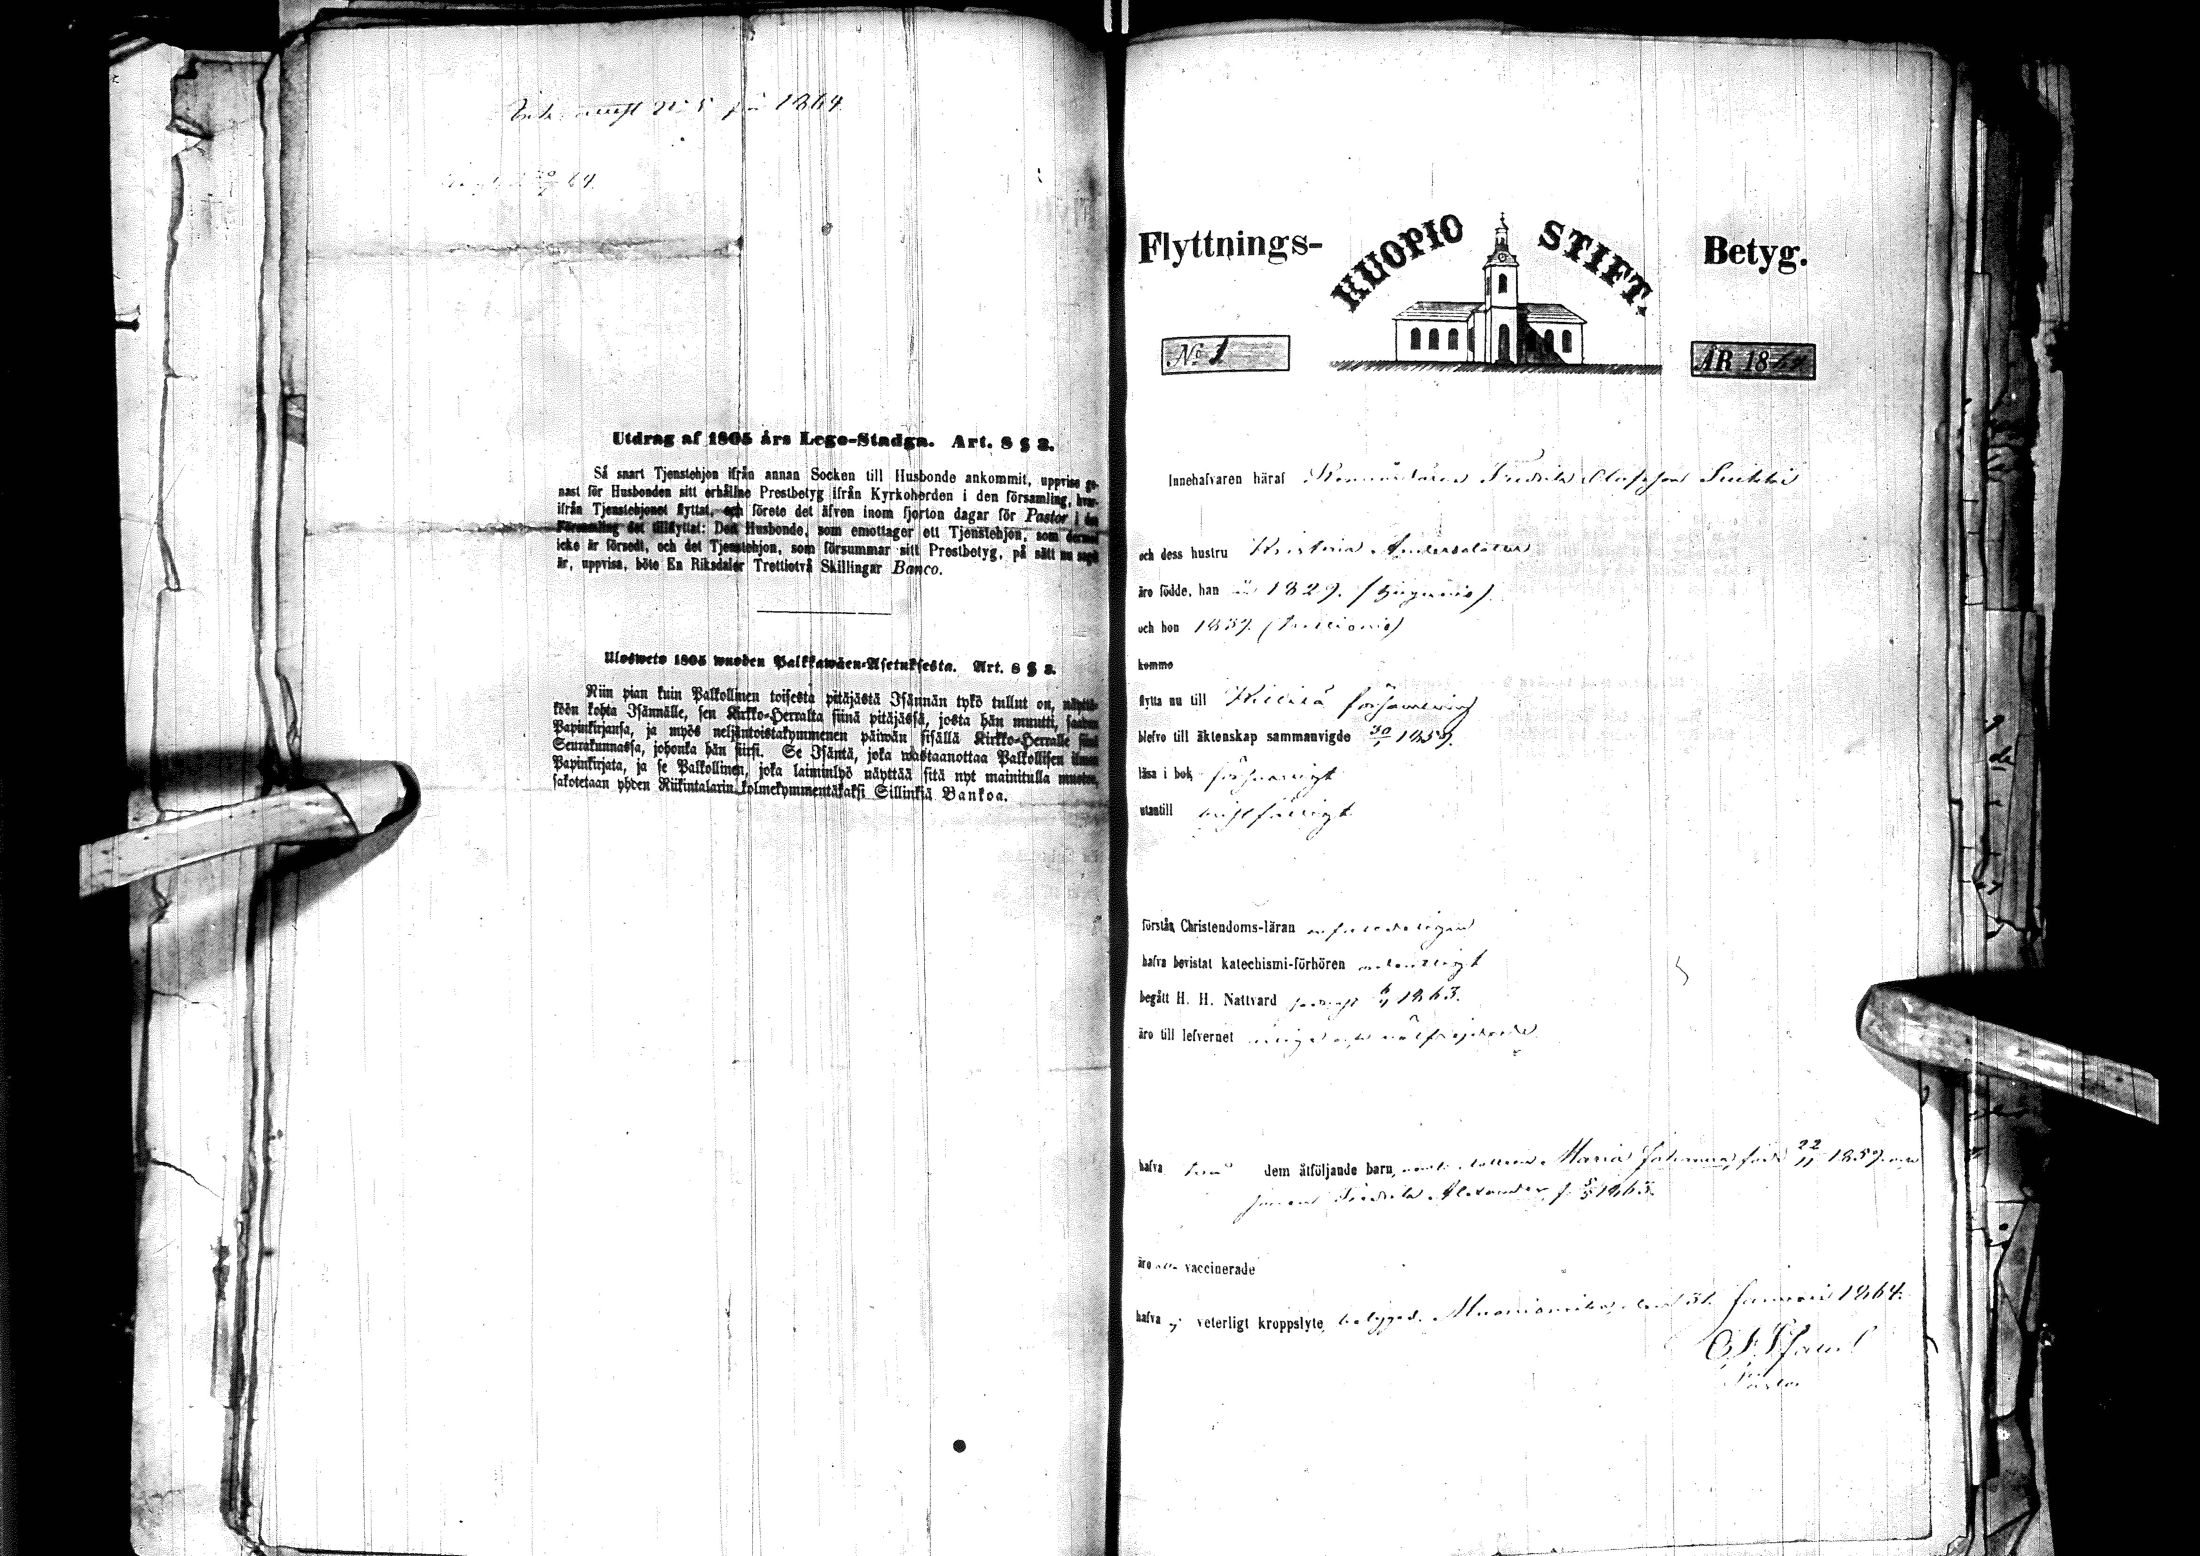 för 1864.
64.
Utdrag af 1805 års Lego-Stadga. Art. 8 § 2.
Så snart Tjenstehjon ifrån annan Socken till Husbonde ankommit, uppvise ge-
nast för Husbonden sitt erhållne Prestbetyg ifrån Kyrkoherden i den församling, hvar-
ifrån Tjenstehjonet flyttat, och förete det äfven inom fjorton dagar för Pastor i den
Församling det tillflyttat: Den Husbonde, som emottager ett Tjenstehjon, som dermed
icke är försedt, och det Tjenstehjon, som försummar sitt Prestbetyg, på sätt nu sagdt
är, uppvisa, böte En Riksdaler Trettiotvå Skillingar Banco.
Ulosweto 1805 wuoden Palkkawäen-Asetuksesta. Art. 8 § 2.
Niin pian kuin Palkollinen toisesta pitäjästä Isännän tykö tullut on, näyttä-
köön kohta Isännälle, sen Kirkko-Herralta siinä pitäjässä, josta hän muutti, saadun
Papinkirjansa, ja myös neljäntoistakymmenen päiwän sisällä Kirkko-Herralle siinä
Seurakunnassa, johonka hän siirsi. Se Isäntä, joka wastaanottaa Palkollisen ilman
Papinkirjata, ja se Palkollinen, joka laiminlyö näyttää sitä nyt mainitulla muoton,
sakotetaan yhden Riikintalarin kolmekymmentäkaksi Sillinkiä Bankoa.
Flyttnings- KUOPIO STIFT. Betyg.
No 1 ÅR 1864
Innehafvaren häraf Fredrik Olofsson
och dess hustru Kristina Andersdotter
äro födde, han 1829.
och hon 1837.
komma
flytta nu till församling
blefvo till äktenskap sammanvigde 1859.
läsa i bok försvarligt
utantill
förstå Christendoms-läran
hafva bevistat katechismi-förhören ordentligt
begått H. H. Nattvard 1863.
äro till lefvernet ärliga och välfrejdade
hafva två dem åtföljande barn, dottren Maria Johanna, född 22/11 1859 och
sonen Fredrik Alexander, f. 1863.
äro alla vaccinerade
hafva ej veterligt kroppslyte, betygad. Muonioniska, den 31 Januari 1864.
Pastor